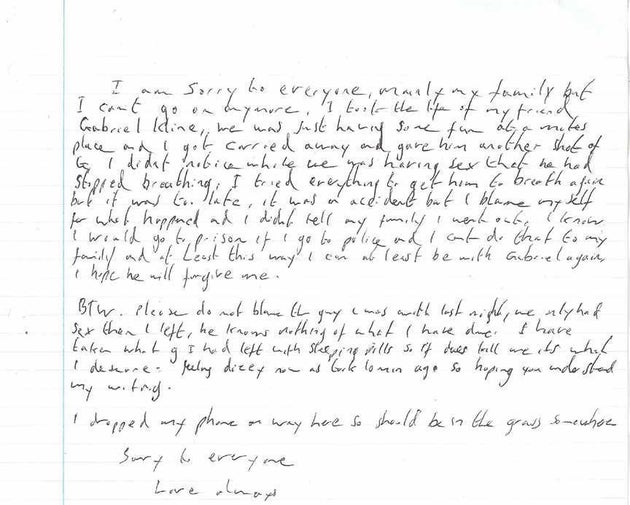 I am Sorry to everyone, mainly my family but
I cant go on anymore, I took the life of my friend
Gabriel kline, we was Just having some fun at a mates
place and I got carried away and gave him another shot of
G I didnt notice while we was having sex that he had
Stopped breathing, I tried everything to get him to breath again
but it was to late, it was an accident but I blame myself
for what happened and I didnt tell my family I went out, I know
I would go to prison if I go to police and I cant do that to my
family and at Least this way I can at least be with Gabriel again,
I hope he will forgive me.
BTW. Please do not blame the guy I was with last night, we only had
sex then I left, he knows nothing of what I have done. I have
taken what g I had left with Sleeping Pills so if it does kill me its what
I deserve. Feeling dizzy now as took 10 min ago so hoping you understand
my writing.
I dropped my phone on way here so should be in the grass Somewhere
Sorry to everyone
Love always